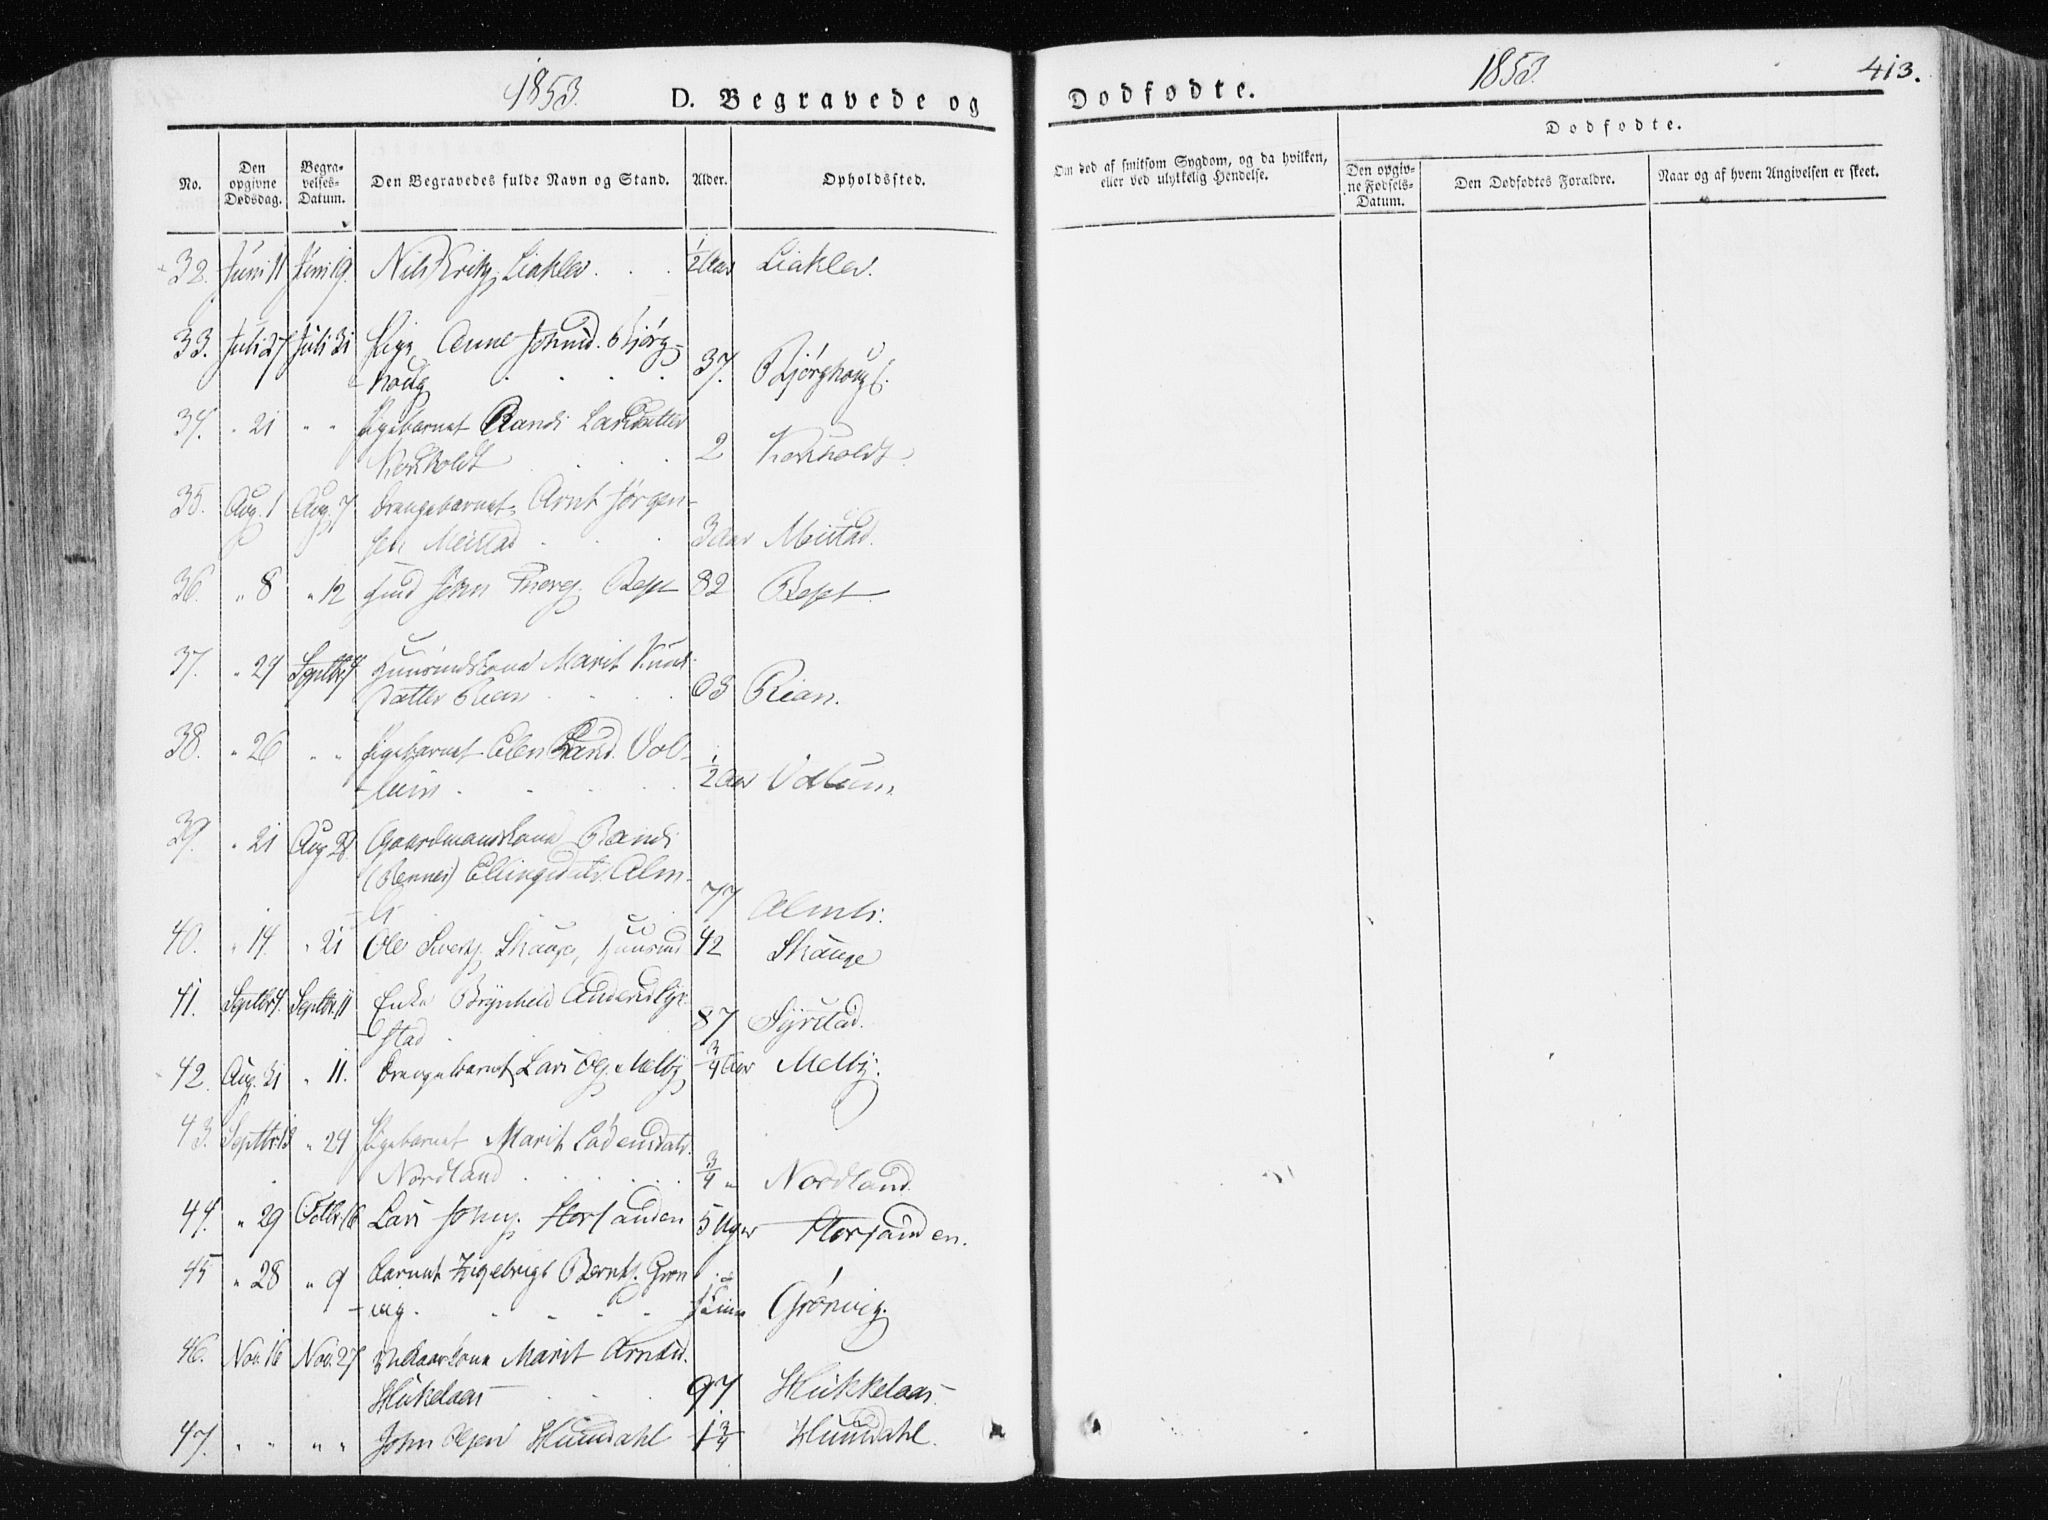 1853.
D. Begravede og
No.
Den opgivne Dødsdag.
Begravelses-Datum.
Den Begravedes fulde Navn og Stand.
Alder.
Opholdssted.
32. Juni 11 Juni 19. Nils Liaklev . . . 1/2 Aar Liaklev.
33. Juli 27 Juli 31 Pige Anne Johnsd. Bjørg-
houg . . . . 37. Bjørghoug
34. " 21 " " Pigebarnet Randi Larsdatter
. . . 2
35. Aug. 1 Aug. 7 Drengebarnet Arnt Jørgen-
sen Meistad . . . 3 Aar Meistad.
36. " 8 " 12 John Rept 82 Rept.
37. " 29 Septbr 4 Huusmdskone Marit Knuds
datter Rian . . . . 63 Rian.
38. " 26 " " Pigebarnet Elen Vol-
lum . . . . 1/2 Aar Vollum.
39. " 21 Aug 28. Gaardmandskone Randi
Ellingsdatr. Alm-
li . . 77 Almli.
40. " 14. " 21 Ole Skauge, Huusmd 42 Skauge
41. Septbr 4. Septbr. 11 Enke Brynhild Andersd. Syr-
stad . . . 87 Syrstad.
42. Aug. 31 " 11. Drengebarnet Lars Ols. Melby 3/4 Aar Melby.
43. Septbr 13 " 24 Pigebarnet Marit
Nordland . . . . . 3/4 " Nordland.
44. " 29 Octbr. 16 Lars Johns. Storsanden 5 Uger Storsanden.
45 " 28 " 9 Barnet Ingebrigt Bernts. Grøn
vig . . . . . Grønvig.
46. Nov. 16 Nov. 27 Marit Arntsd.
Hukelaas . . . 97 Hukkelaas
47. " " " " John Olsen Huundahl 1 3/4 Huundahl.
Dødfødte.
1853.
413.
Om død af smitsom Sygdom, og da hvilken,
eller ved ulykkelig Hendelse.
Dødfødte.
Den opgiv-
ne Fødsels-
Datum.
Den Dødfødtes Forældre.
Naar og af hvem Angivelsen er skeet.